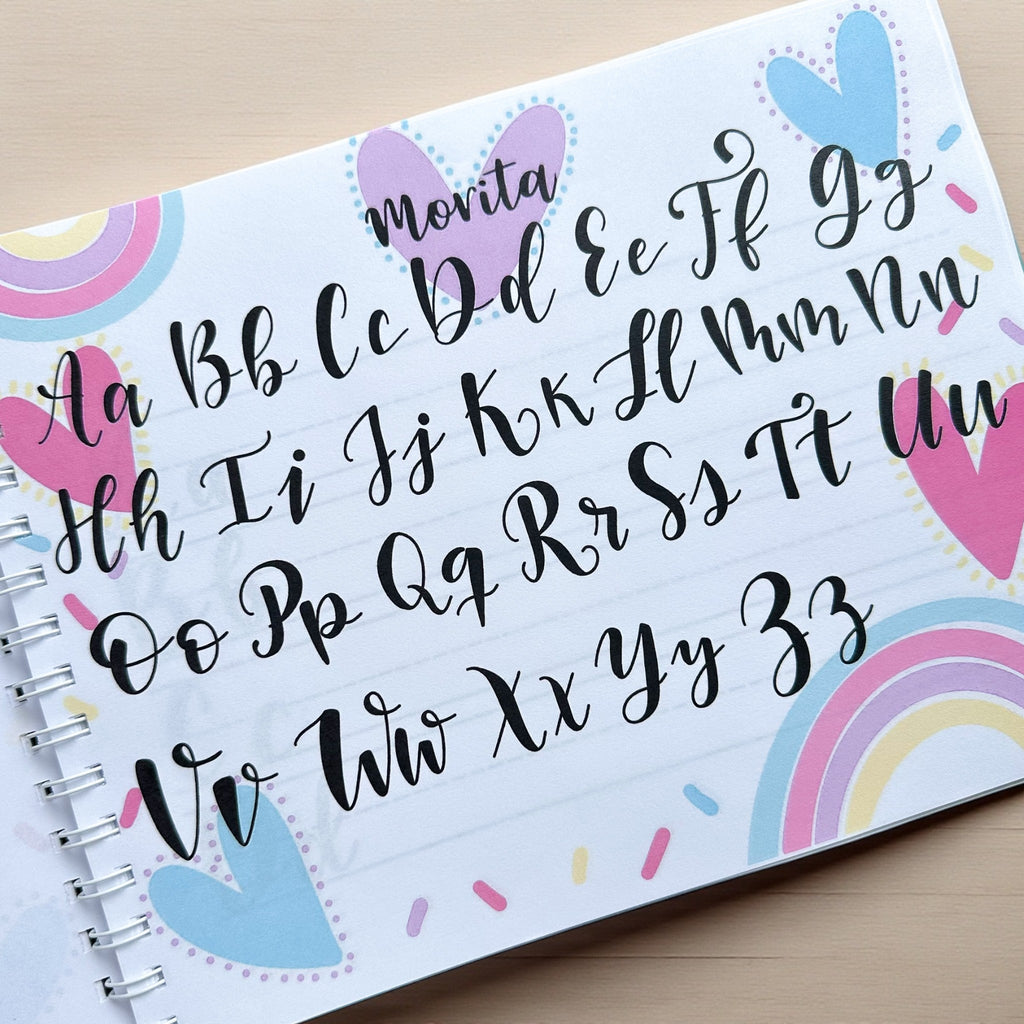 Morita
Aa Bb Cc Dd Ee Ff Gg
Hh Ii Jj Kk Ll Mm Nn
Oo Pp Qq Rr Ss Tt Uu
Vv Ww Xx Yy Zz